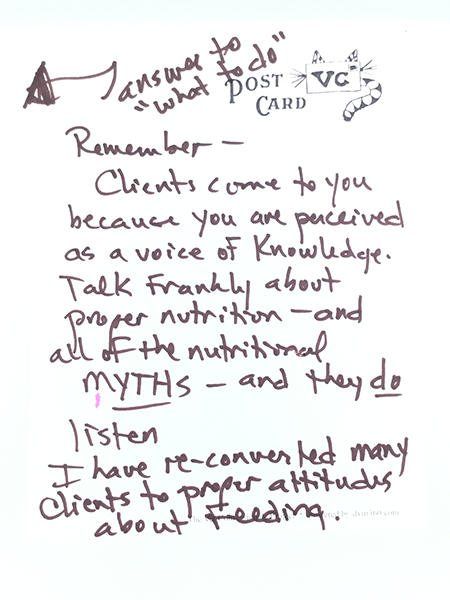 answer to
"what to do"
POST
CARD
VC
Remember —
Clients come to you
because you are perceived
as a voice of Knowledge.
Talk Frankly about
proper nutrition — and
all of the nutritional
MYTHS — and they do
listen
I have re-converted many
Clients to proper attitudes
about Feeding.